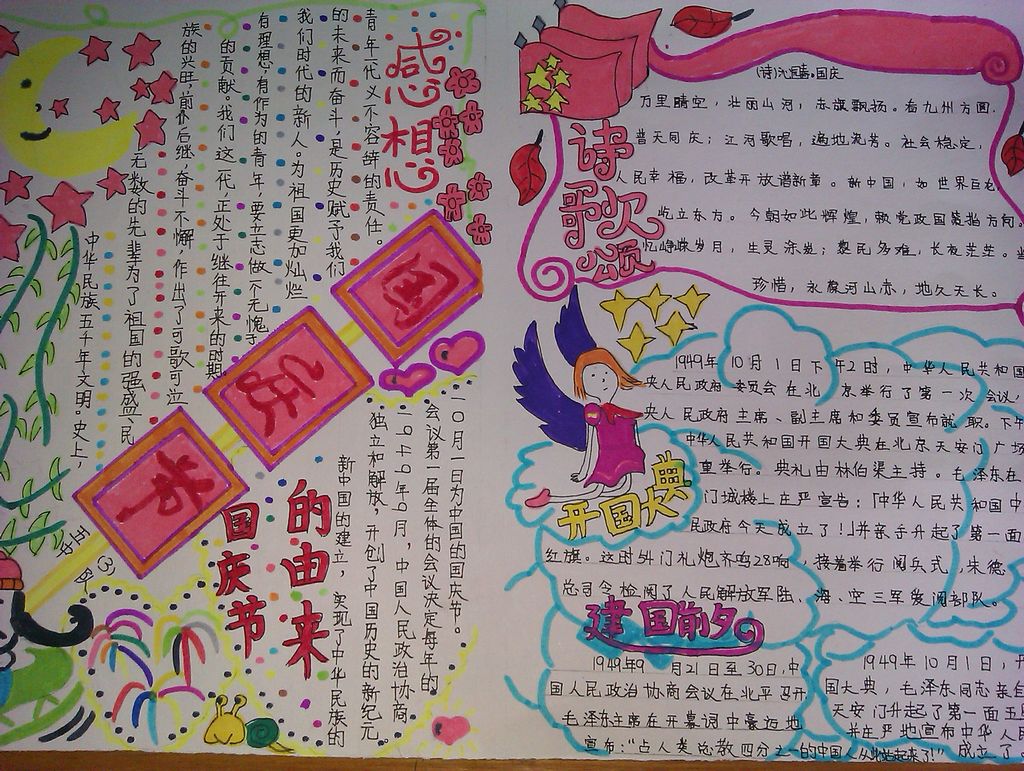 感想
青年一代义不容辞的责任。
的未来而奋斗,是历史赋予我们
我们时代的新人。为祖国更加灿烂
有理想,有作为的青年,要立志做个无愧于
的贡献。我们这一代,正处于继往开来的时期
族的兴旺,前仆后继,奋斗不懈,作出了可歌可泣
无数的先辈为了祖国的强盛、民
中华民族五千年文明。史上,
国
庆
节
五中队
③
国庆节
的由来
一〇月一日为中国的国庆节。
会议第一届全体的会议决定每年的
一九四九年9月,中国人民政治协商
独立和解放,开创了中国历史的新纪元。
新中国的建立,实现了中华民族的
诗歌颂
国庆
万里晴空,壮丽山河,赤旗飘扬。看九州方圆,
普天同庆;江河歌唱,遍地流芳。社会稳定,
人民幸福,改革开放谱新章。新中国,如世界巨龙
屹立东方。今朝如此辉煌,赖党政国策指方向。
忆峥嵘岁月,生灵涂炭;黎民多难,长夜茫茫。当
珍惜,永葆河山赤,地久天长。
开国大典
1949年10月1日下午2时,中华人民共和国
央人民政府委员会在北京举行了第一次会议,
央人民政府主席、副主席和委员宣布就职。下午
中华人民共和国开国大典在北京天安门广场
重举行。典礼由林伯渠主持。毛泽东在
门城楼上庄严宣告:「中华人民共和国中
民政府今天成立了!」并亲手升起了第一面
红旗。这时外门礼炮齐鸣28响,接着举行阅兵式,朱德
总司令检阅了人民解放军陆、海、空三军受阅部队。
建国前夕
1949年9月21日至30日,中
国人民政治协商会议在北平召开
毛泽东主席在开幕词中豪迈地
宣布:"占人类总数四分之一的中国人从此站起来了!"
1949年10月1日,开
国大典,毛泽东同志亲自
天安门升起了第一面五星
并庄严地宣布中华人民
成立了